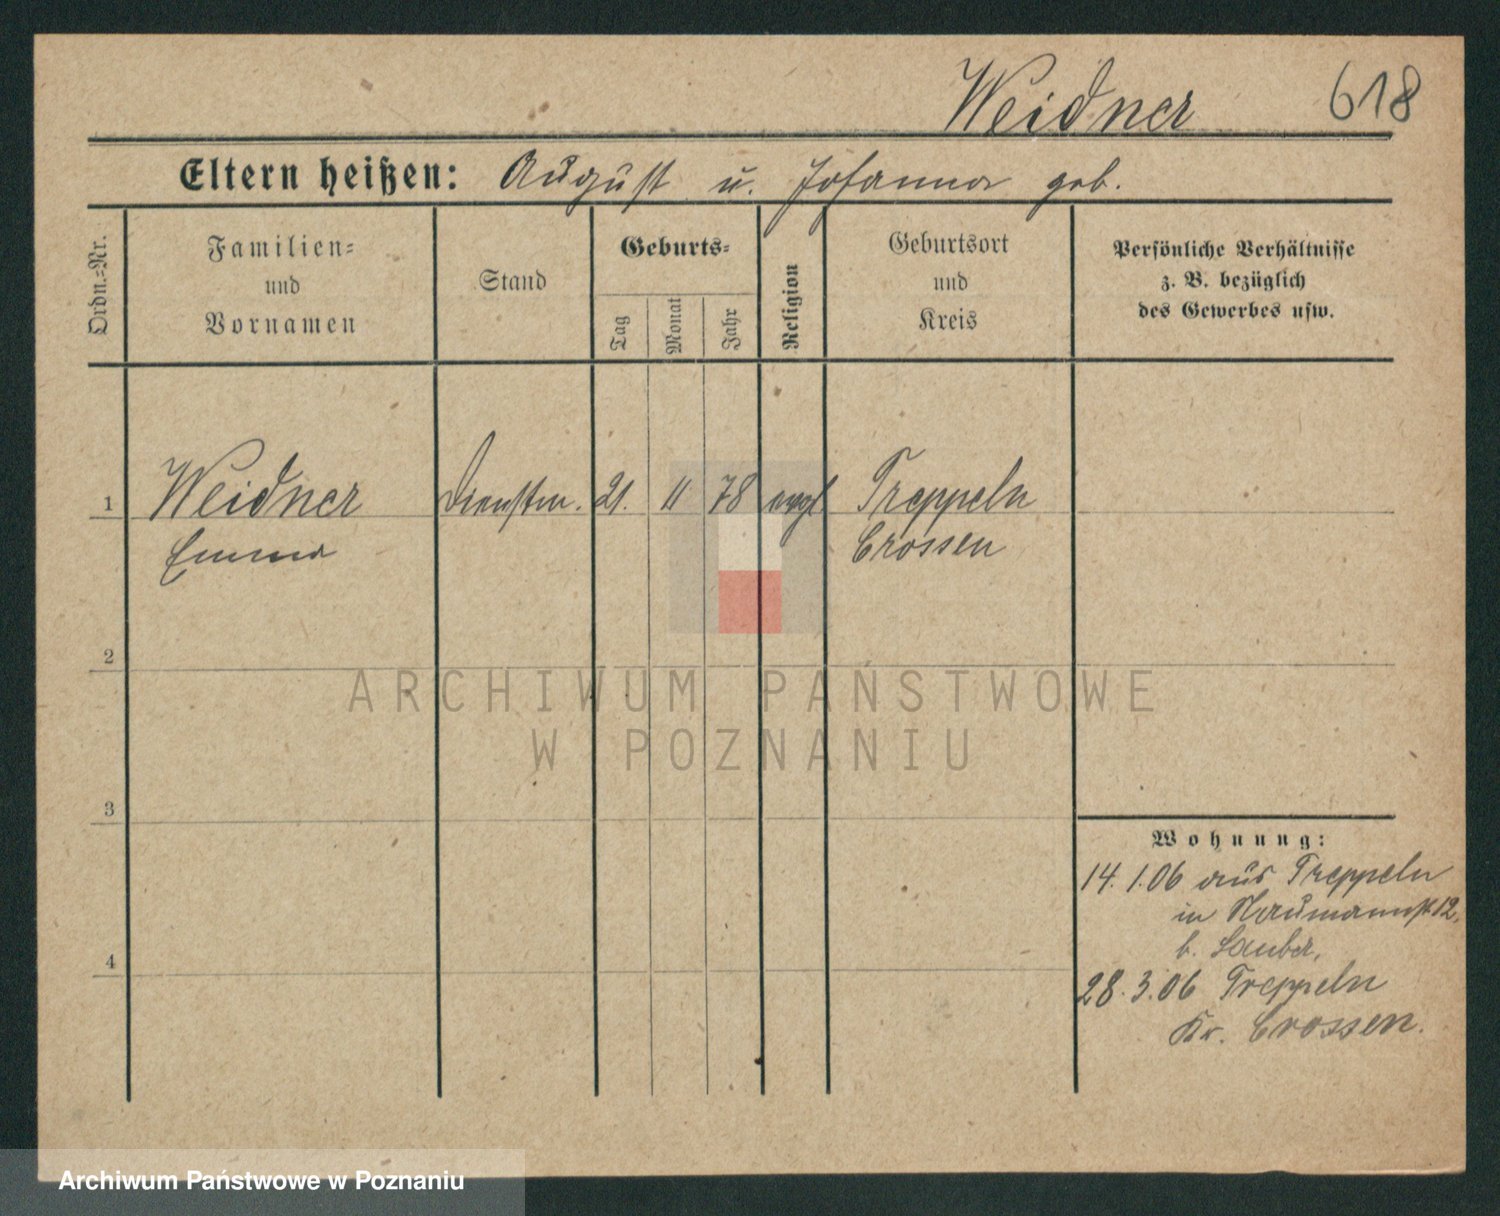 Weidner 618
Eltern heißen: August u. Johanna geb.
Ordn.=Nr.
Familien=
und
Vornamen
Stand
Geburts=
Tag
Monat
Jahr
Religion
Geburtsort
und
Kreis
Persönliche Verhältnisse
z. B. bezüglich
des Gewerbes usw.
1 Weidner Dienstm. 21. 11 78 evgl Treppeln
Emma Crossen
2
ARCHIWUM PAŃSTWOWE
W POZNANIU
3
Wohnung:
14. 1.06 aus Treppeln
in Naumannst 12,
b. Lauber,
4
28. 3.06 Treppeln
Kr. Crossen.
Archiwum Państwowe w Poznaniu